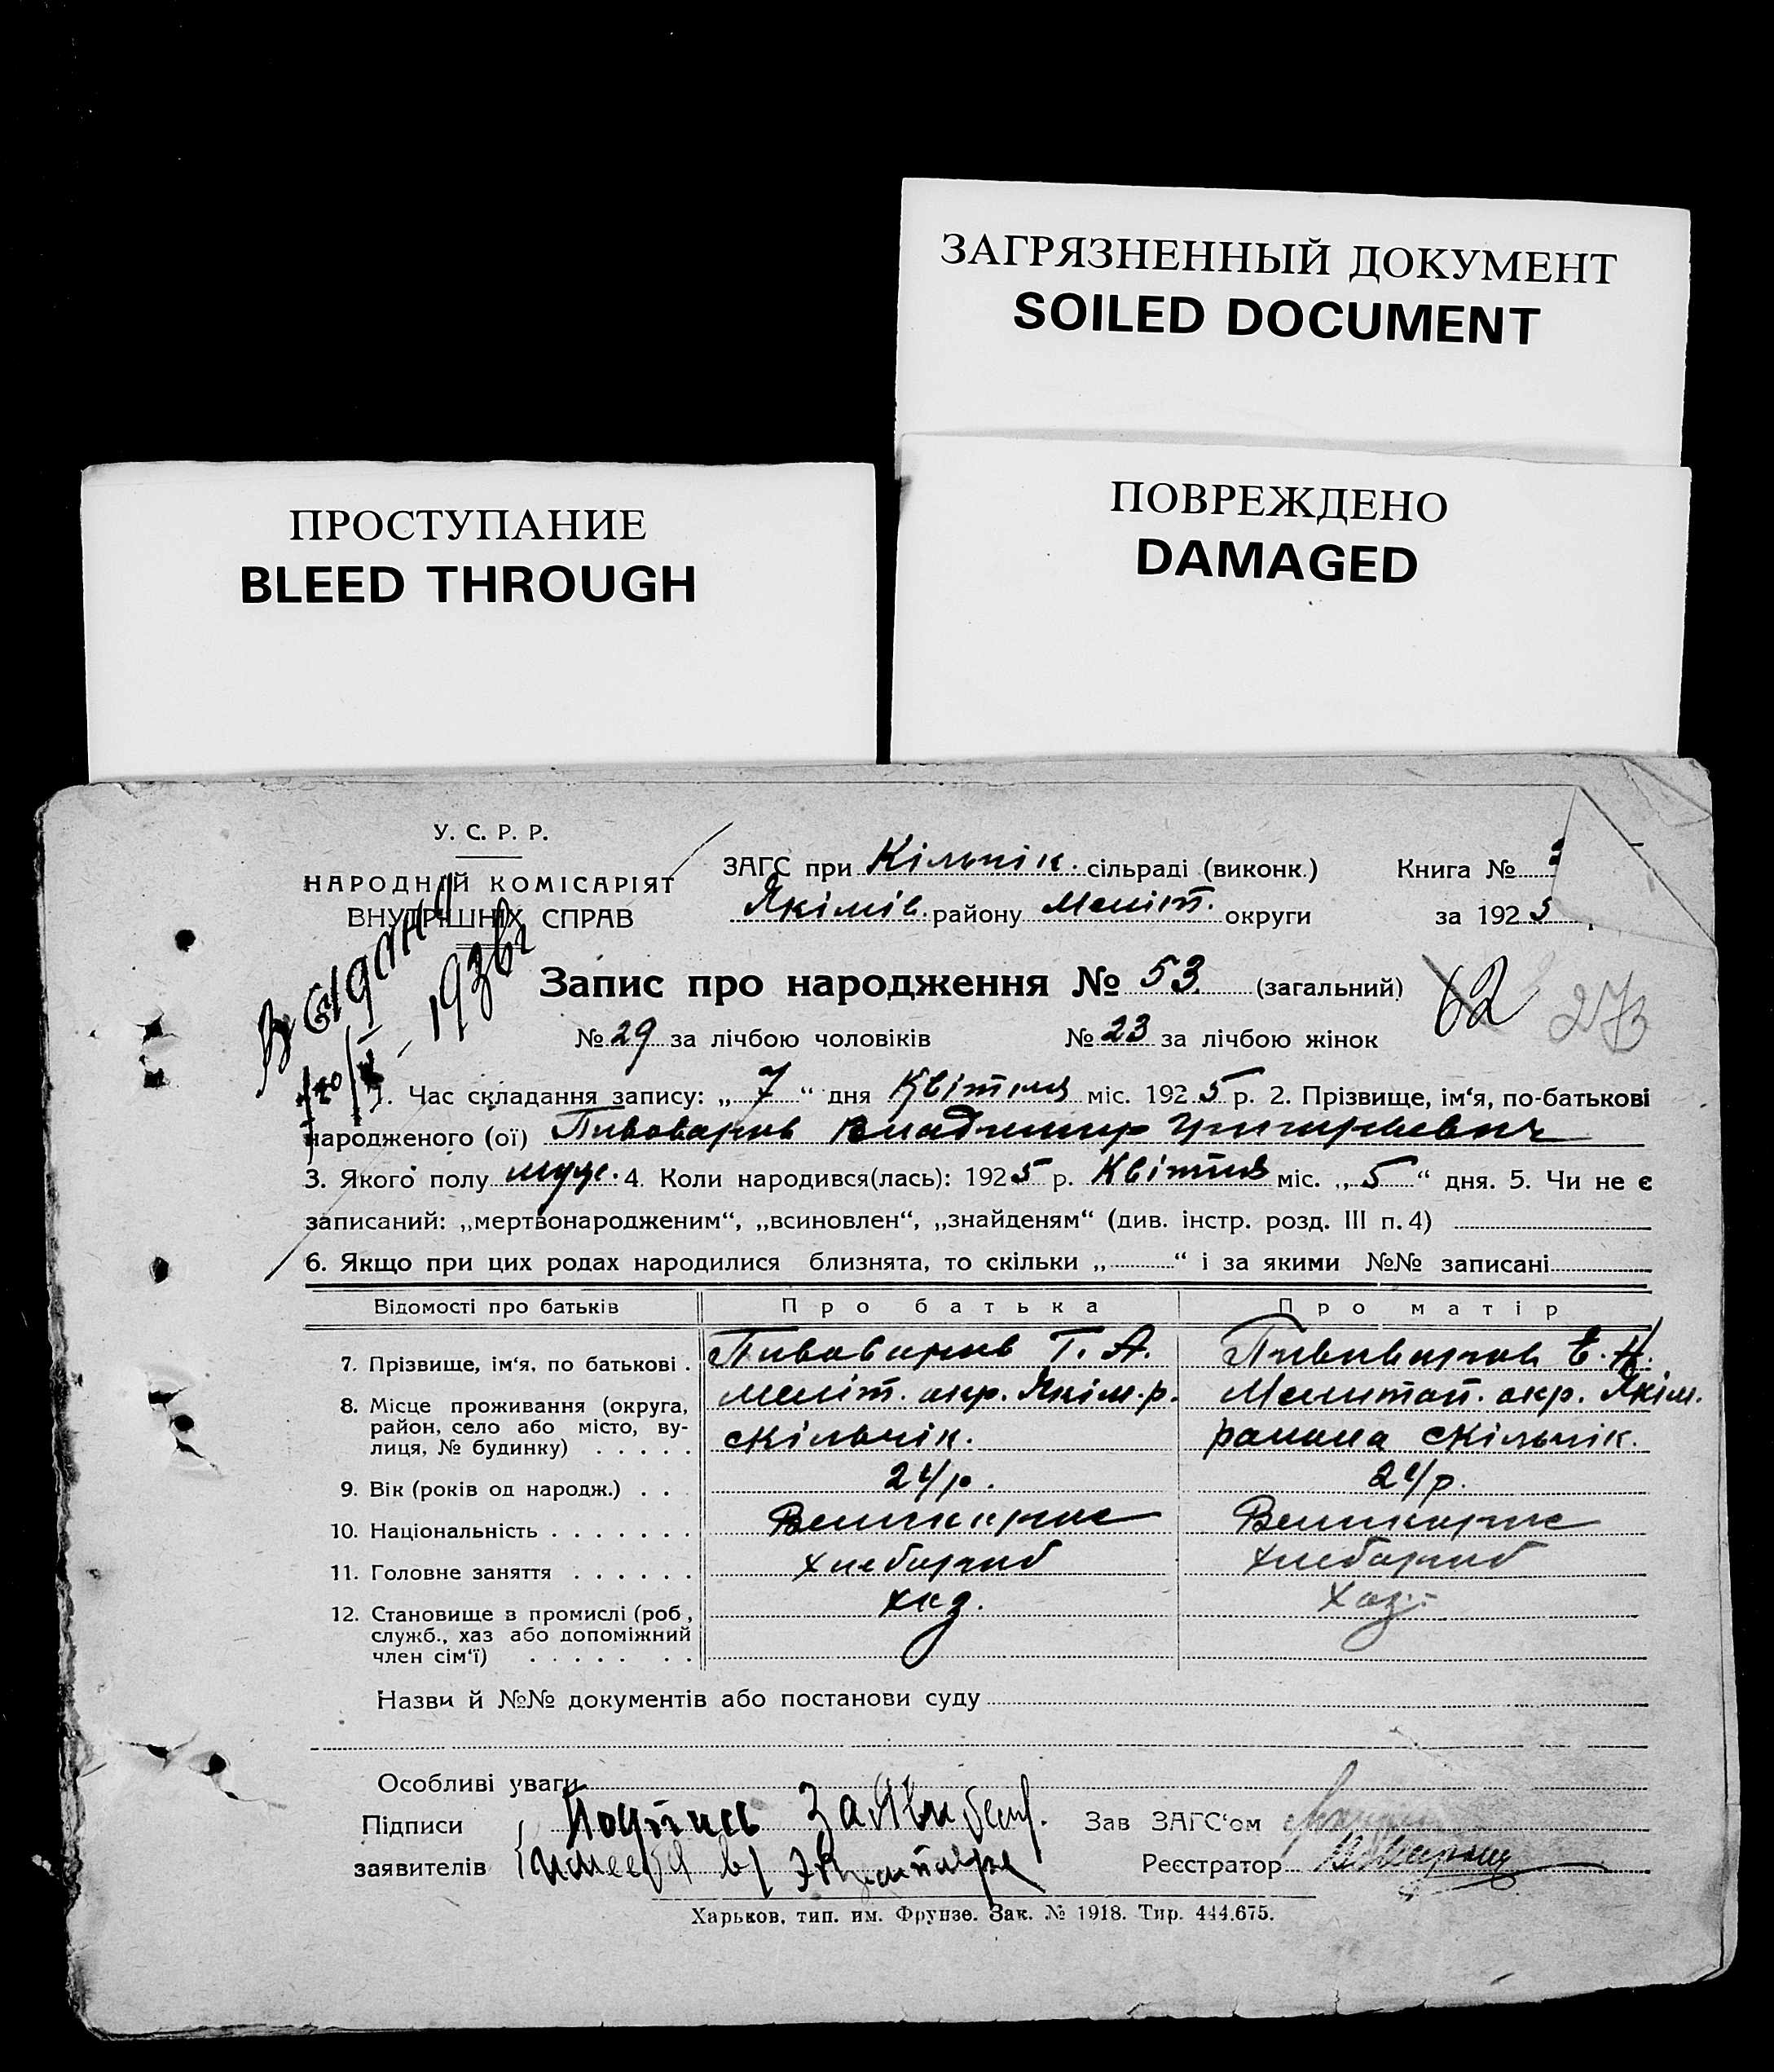 ЗАГРЯЗНЕННЫЙ ДОКУМЕНТ
SOILED DOCUMENT
ПРОСТУПАНИЕ
BLEED THROUGH
ПОВРЕЖДЕНО
DAMAGED
У. С. Р. Р.
НАРОДНИЙ КОМІСАРІЯТ
ВНУТРІШНІХ СПРАВ
ЗАГС при Кільчік. сільраді (виконк.) Книга №
Якімів. району Меліт. округи за 1925
Выдана
193
Запис про народження № 53 (загальний) 62 273
№ 29 за лічбою чоловіків № 23 за лічбою жінок
1. Час складання запису: „7“ дня Квітня міс. 1925 р. 2. Прізвище, ім‘я, по-батькові
народженого (ої) Пивоваров Владимир Григорьевич
3. Якого полу муж. 4. Коли народився(лась): 1925 р. Квітня міс. „5“ дня. 5. Чи не є
записаний: „мертвонародженим“, „всиновлен“, „знайденям“ (див. інстр. розд. III п. 4)
6. Якщо при цих родах народилися близнята, то скільки „ “ і за якими №№ записані
Відомості про батьків Про батька Про матір
7. Прізвище, ім‘я, по батькові . Пивоваров Г. А. Пивоварова Е. Н.
8. Місце проживання (округа, район, село або місто, вулиця, № будинку) Меліт. окр. Якім. р. с Кільчік. Мелитоп. окр. Якім. района с Кільчік.
9. Вік (років од народж.) 24 р. 24 р.
10. Національність Великорос Великорос
11. Головне заняття хлебороб хлебороб
12. Становище в промислі (роб, служб., хаз або допоміжний член сім‘ї) хаз. хаз.
Назви й №№ документів або постанови суду
Особливі уваги
Підписи заявителів Подпись Заявител. имеется в экземпляре
Зав ЗАГС‘ом
Реєстратор
Харьков, тип. им. Фрунзе. Зак. № 1918. Тир. 444.675.